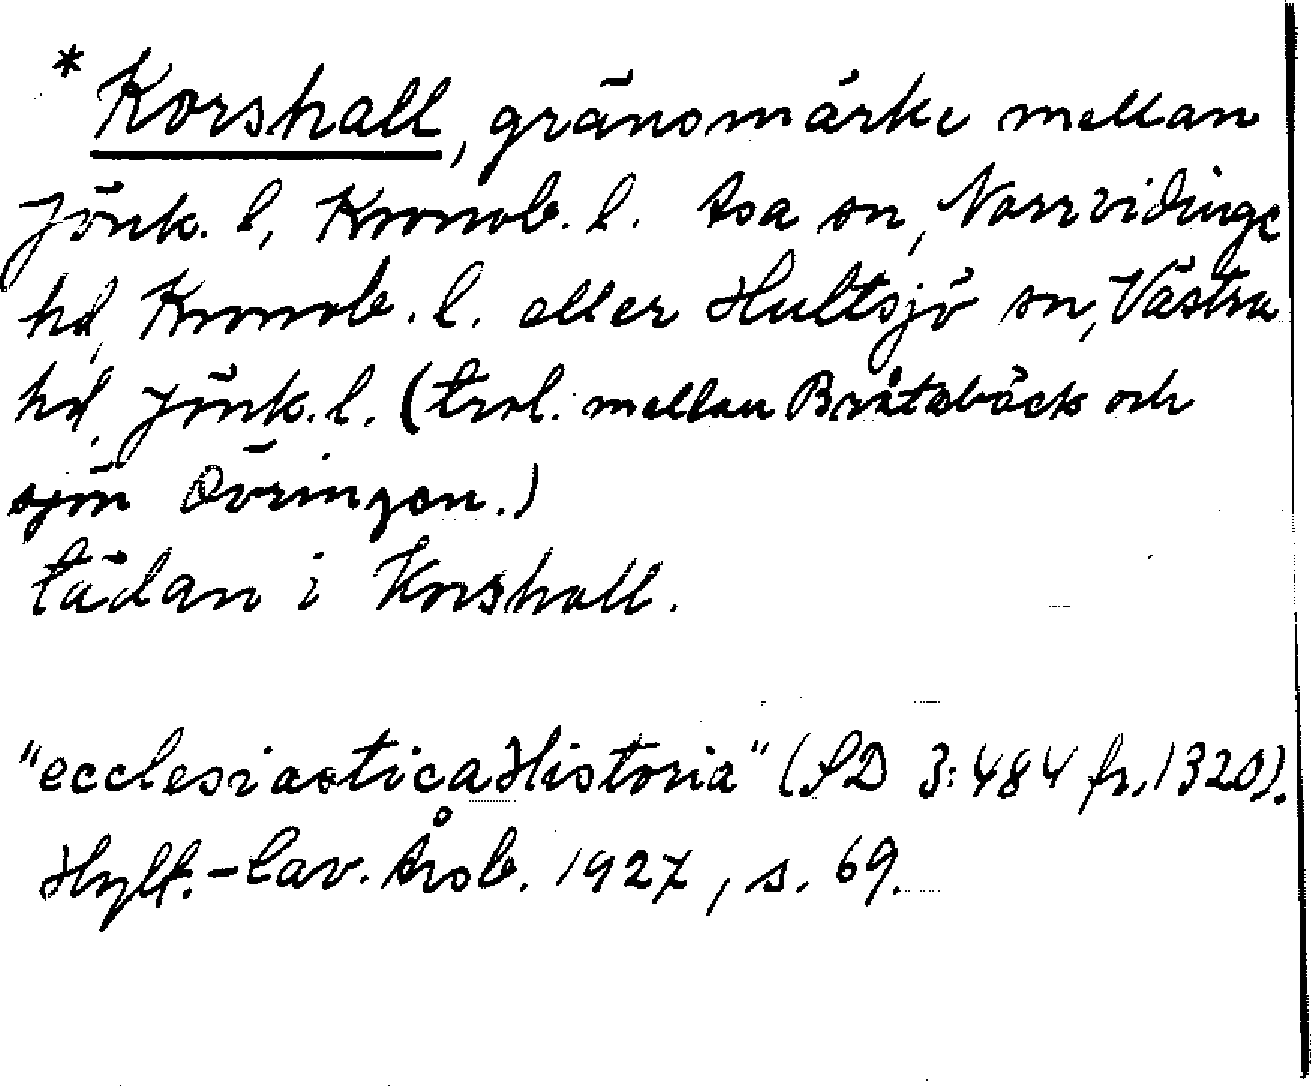 * Korshall, gränsmärke mellan
Jönk. l, Kronob. l. Asa sn, Norrvidinge
hd, Kronob. l. eller Hultsjö sn, Västra
hd, Jönk. l. (trol. mellan Bråtabäck och
sjön Övringen.)
tädan i Korshall.
"ecclesiastica Historia" (SD 3:484 fr. 1320).
Hylt.-Cav. Årsb. 1927, s. 69.